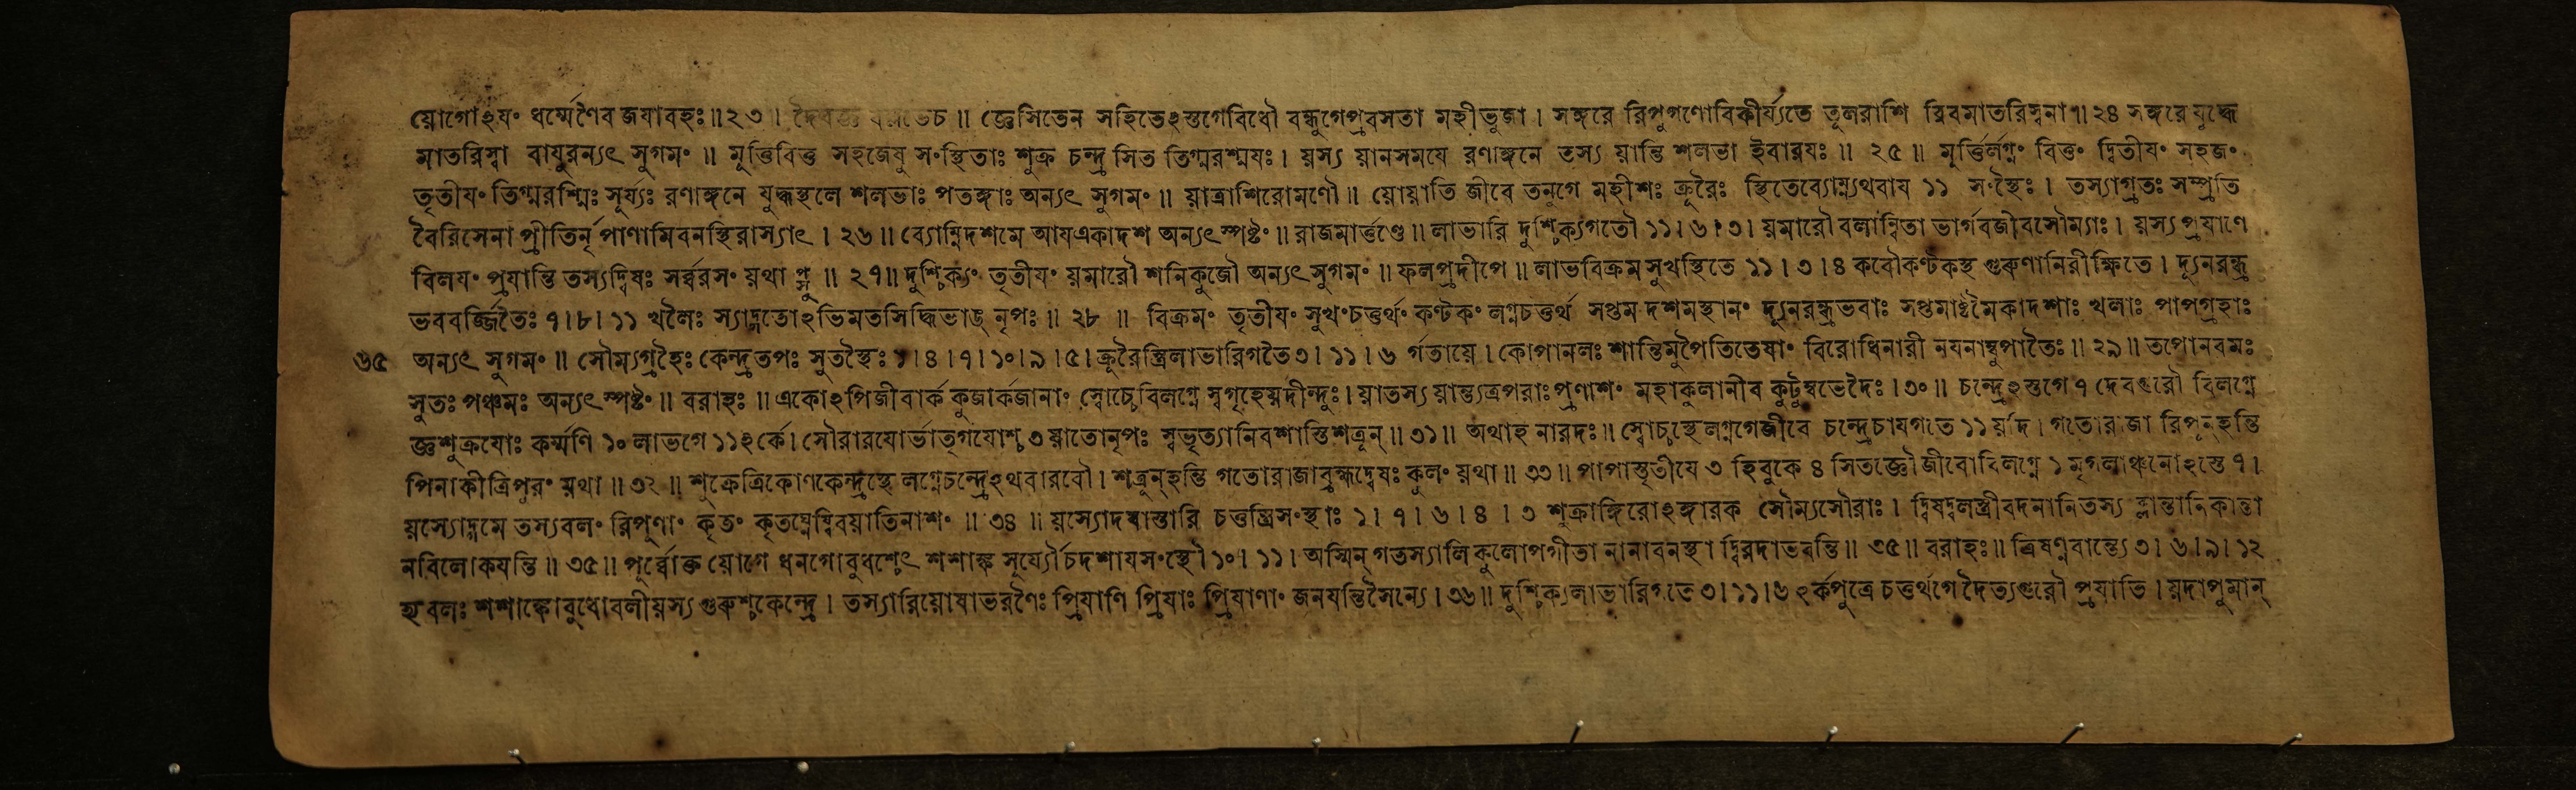 য়োগোঽযং ধর্ম্মেণৈব জযাবহঃ॥২৩। চ॥ জ্ঞেসিতেন সহিতেঽস্তগেবিধৌ বন্ধুগেপ্রবসতা মহীভুজা। সঙ্গরে রিপুগণোবিকীর্য্যতে তূলরাশি রিবমাতরিস্বনা৭।২৪ সঙ্গরে যুদ্ধে
মাতরিস্বা বাযুরন্যৎ সুগমং॥ মূর্ত্তিবিত্ত সহজেষু সংস্থিতাঃ শুক্র চন্দ্র সিত তিগ্মরশ্মযঃ। য়স্য য়ানসমযে রণাঙ্গনে তস্য য়ান্তি শলভা ইবারযঃ॥ ২৫॥ মূর্ত্তির্লগ্নং বিত্তং দ্বিতীযং সহজং
তৃতীযং তিগ্মরশ্মিঃ সূর্য্যঃ রণাঙ্গনে যুদ্ধস্থলে শলভাঃ পতঙ্গাঃ অন্যৎ সুগমং॥ য়াত্রাশিরোমণৌ॥ য়োয়াতি জীবে তনুগে মহীশঃ ক্রূরৈঃ স্থিতেব্যোম্ন্যথবায ১১ সংস্থৈঃ। তস্যাগ্রতঃ সম্প্রতি
বৈরিসেনা প্রীতির্নৃপাণামিবনস্থিরাস্যাৎ। ২৬॥ ব্যোম্নিদশমে আযএকাদশ অন্যৎস্পষ্টং॥ রাজমার্ত্তণ্ডে॥ লাভারি দুশ্চিক্যগতৌ ১১।৬।৩। য়মারৌ বলান্বিতা ভার্গবজীবসৌম্যাঃ। য়স্য প্রযাণে
বিলযং প্রযান্তি তস্যদ্বিষঃ সর্ব্বরসং য়থা প্সু॥ ২৭॥ দুশ্চিক্যং তৃতীযং য়মারৌ শনিকুজৌ অন্যৎসুগমং॥ ফলপ্রদীপে॥ লাভবিক্রম সুখস্থিতে ১১।৩।৪ কবৌকণ্টকস্থ গুরুণানিরীক্ষিতে। দ্যূনরন্ধ্র
ভববর্জ্জিতৈঃ ৭।৮।১১ খলৈঃ স্যাদ্গতোঽভিমতসিদ্ধিভাঙ্ নৃপঃ॥ ২৮ ॥ বিক্রমং তৃতীযং সুখংচত্তর্থং কণ্টকং লগ্নচত্তর্থ সপ্তম দশমস্থানং দ্যূনরন্ধ্রভবাঃ সপ্তমাষ্টমৈকাদশাঃ খলাঃ পাপগ্রহাঃ
৬৫ অন্যৎ সুগমং॥ সৌম্যগ্রহৈঃ কেন্দ্রতপঃ সুতস্থৈঃ ১।৪।৭।১০।৯।৫।ক্রূরৈস্ত্রিলাভারিগতৈ৩।১১।৬ র্গতায়ে। কোপানলঃ শান্তিমুপৈতিতেষাং বিরোধিনারী নযনাম্বুপাতৈঃ॥ ২৯॥ তপোনবমঃ
সুতঃ পঞ্চমঃ অন্যৎস্পষ্টং॥ বরাহঃ॥ একোঽপিজীবার্ক কুজার্কজানাং স্বোচ্চেবিলগ্নে স্বগৃহেয়দীন্দুঃ। য়াতস্য য়ান্ত্যত্রপরাঃপ্রণাশং মহাকুলানীব কুটুম্বভেদৈঃ।৩০॥ চন্দ্রেঽস্তগে ৭ দেবগুরৌ বিলগ্নে
জ্ঞশুক্রযোঃ কর্ম্মণি ১০ লাভগে ১১ঽর্কে। সৌরারযোর্ভাতৃগযোশ্চ ৩ য়াতোনৃপঃ স্বভৃত্যানিবশাস্তিশত্রূন্॥ ৩১॥ অথাহ নারদঃ॥ স্বোচ্চস্থে লগ্নগেজীবে চন্দ্রেচাযগতে ১১ য়দি। গতোরাজা রিপূন্‌হন্তি
পিনাকীত্রিপুরং য়থা॥ ৩২॥ শুক্রেত্রিকোণকেন্দ্রস্থে লগ্নেচন্দ্রেঽথবারবৌ। শত্রূন্‌হন্তি গতোরাজাব্রহ্মদ্বেষঃ কুলং য়থা॥ ৩৩॥ পাপাস্তৃতীযে ৩ হিবুকে ৪ সিতজ্ঞৌ জীবোবিলগ্নে ১ মৃগলাঞ্চনোঽস্তে ৭।
য়স্যোদ্গমে তস্যবলং রিপূণাং কৃতং কৃতঘ্নেষ্বিবয়াতিনাশং॥ ৩৪॥ য়স্যোদযাস্তারি চত্তস্ত্রিসংস্থাঃ ১।৭।৬।৪।৩ শুক্রাঙ্গিরোঽঙ্গারক সৌম্যসৌরাঃ। দ্বিষদ্বলস্ত্রীবদনানিতস্য ক্লান্তানিকান্তা
নবিলোকযন্তি॥ ৩৫॥ পূর্ব্বোক্ত য়োগে ধনগোবুধশ্চেৎ শশাঙ্ক সূর্য্যৌচদশাযসংস্থৌ ১০।১১। অস্মিন্ গতস্যালি কুলোপগীতা নানাবনস্থা দ্বিরদাভবন্তি॥ ৩৫॥ বরাহঃ॥ ত্রিষণ্নবান্ত্যে ৩।৬।৯।১২
হ্যবলঃ শশাঙ্কোবুধোবলীয়স্য গুরুশ্চকেন্দ্রে। তস্যারিয়োষাভরণৈঃ প্রিযাণি প্রিযাঃ প্রিযাণাং জনযন্তিসৈন্যে।৩৬॥ দুশ্চিক্যলাভারিগতে ৩।১১।৬ ঽর্কপুত্রে চত্তর্থগে দৈত্যগুরৌ প্রযাতি। য়দাপুমান্